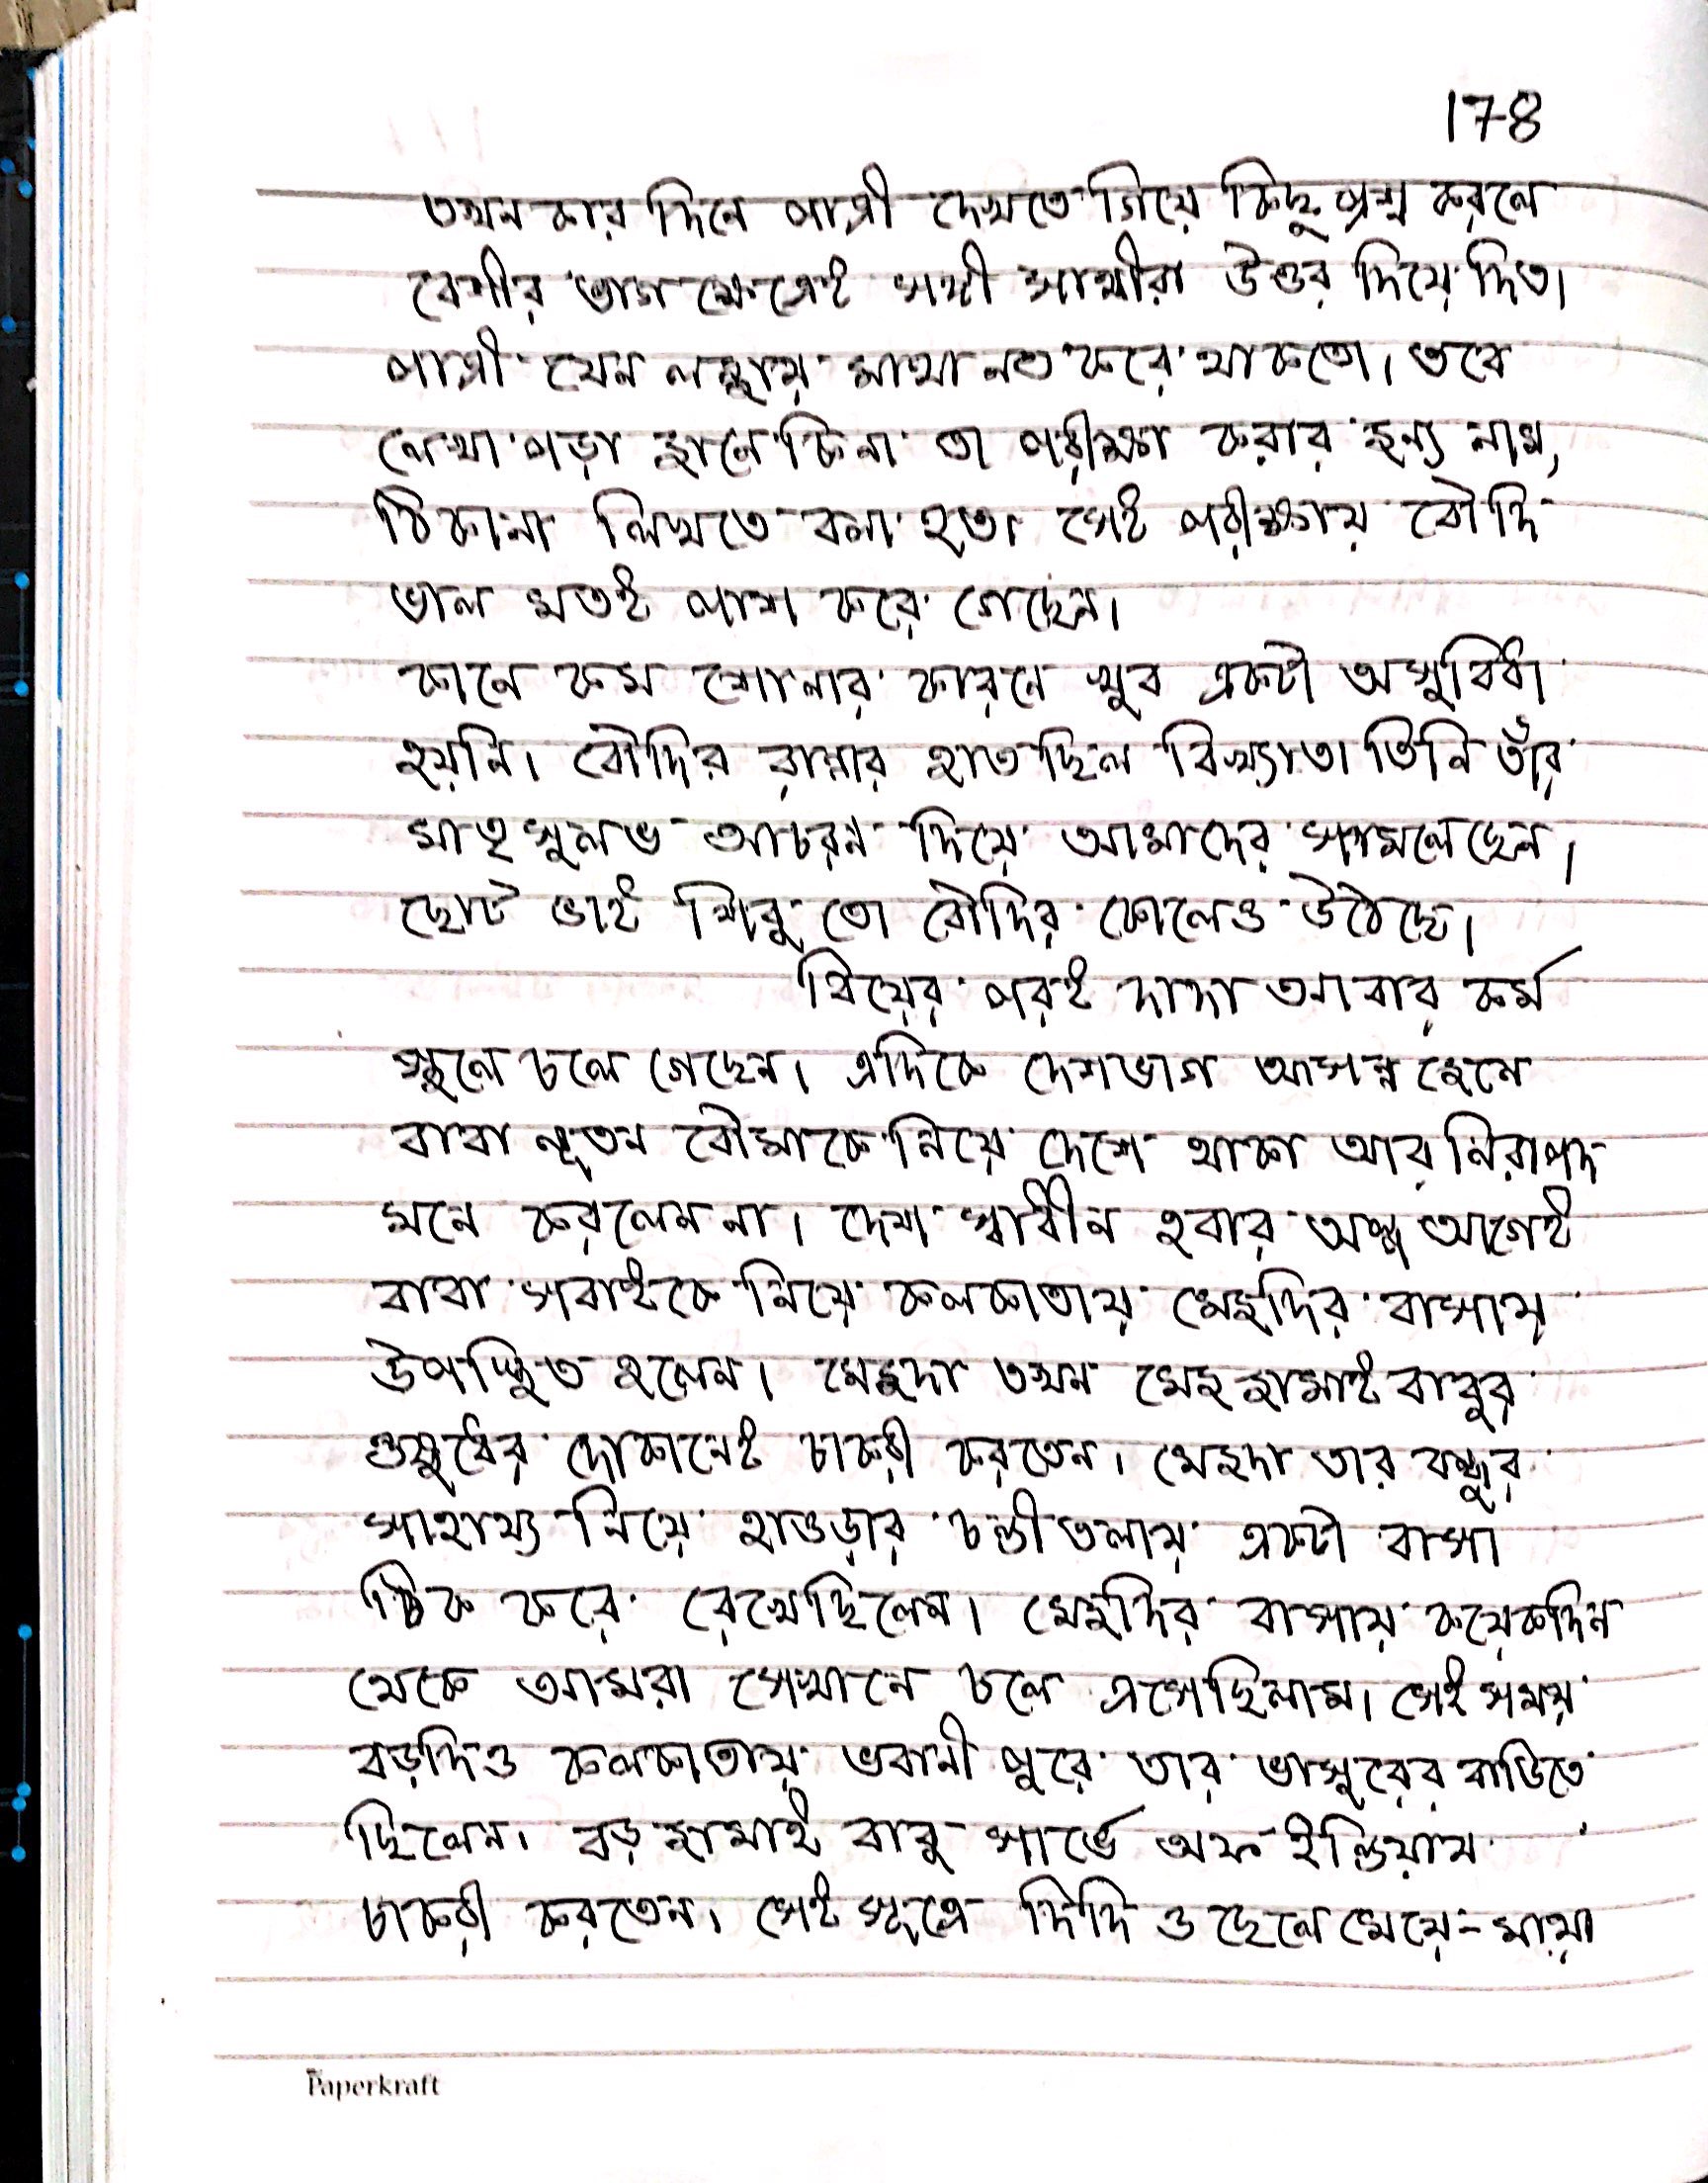 178
তখন কার দিনে পাত্রী দেখতে গিয়ে কিছু প্রশ্ন করলে
বেশীর ভাগ ক্ষেত্রেই সঙ্গী সাথীরা উত্তর দিয়ে দিত।
পাত্রী যেন লজ্জায় মাথা নত করে থাকতো। তবে
লেখা পড়া জানে কিনা তা পরীক্ষা করার জন্য নাম,
ঠিকানা লিখতে বলা হত। সেই পরীক্ষায় বৌদি
ভাল মতই পাশ করে গেছেন।
কানে কম শোনার কারনে খুব একটা অসুবিধা
হয়নি। বৌদির রান্নার হাত ছিল বিখ্যাত। তিনি তাঁর
মাতৃ সুলভ আচরন দিয়ে আমাদের সামলেছেন।
ছোট ভাই শিবু তো বৌদির কোলেও উঠেছে।
বিয়ের পরই দাদা আবার কর্ম
স্থলে চলে গেছেন। এদিকে দেশভাগ আসন্ন জেনে
বাবা নূতন বৌমাকে নিয়ে দেশে থাকা আর নিরাপদ
মনে করলেন না। দেশ স্বাধীন হবার অল্প আগেই
বাবা সবাইকে নিয়ে কলকাতায় মেজদির বাসায়
উপস্থিত হলেন। মেজদা তখন মেজজামাই বাবুর
ওষুধের দোকানেই চাকরী করতেন। মেজদা তার বন্ধুর
সাহায্য নিয়ে হাওড়ার চন্ডীতলায় একটা বাসা
ঠিক করে রেখেছিলেন। মেজদির বাসায় কয়েকদিন
থেকে আমরা সেখানে চলে এসেছিলাম। সেই সময়
বড়দিও কলকাতায় ভবানী পুরে তার ভাসুরের বাড়িতে
ছিলেন। বড় জামাই বাবু সার্ভে অফ ইন্ডিয়ায়
চাকরী করতেন। সেই সূত্রে দিদি ও ছেলে মেয়ে - মায়া
Paperkraft